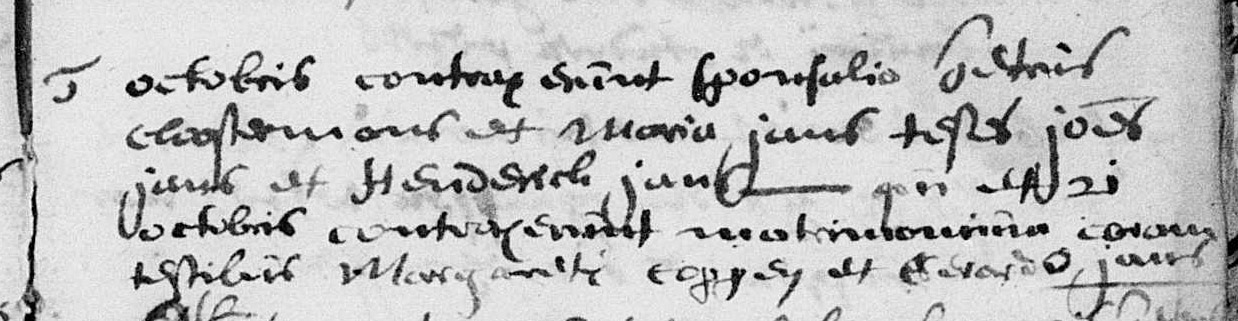 5 octobris contraxerunt sponsalia petrus
cloostermans et Maria jans testes joēs
jans et Henderick jans et 21
octobris contraxerunt matrimonium coram
testibus Margareta coppen et Gerardo jans